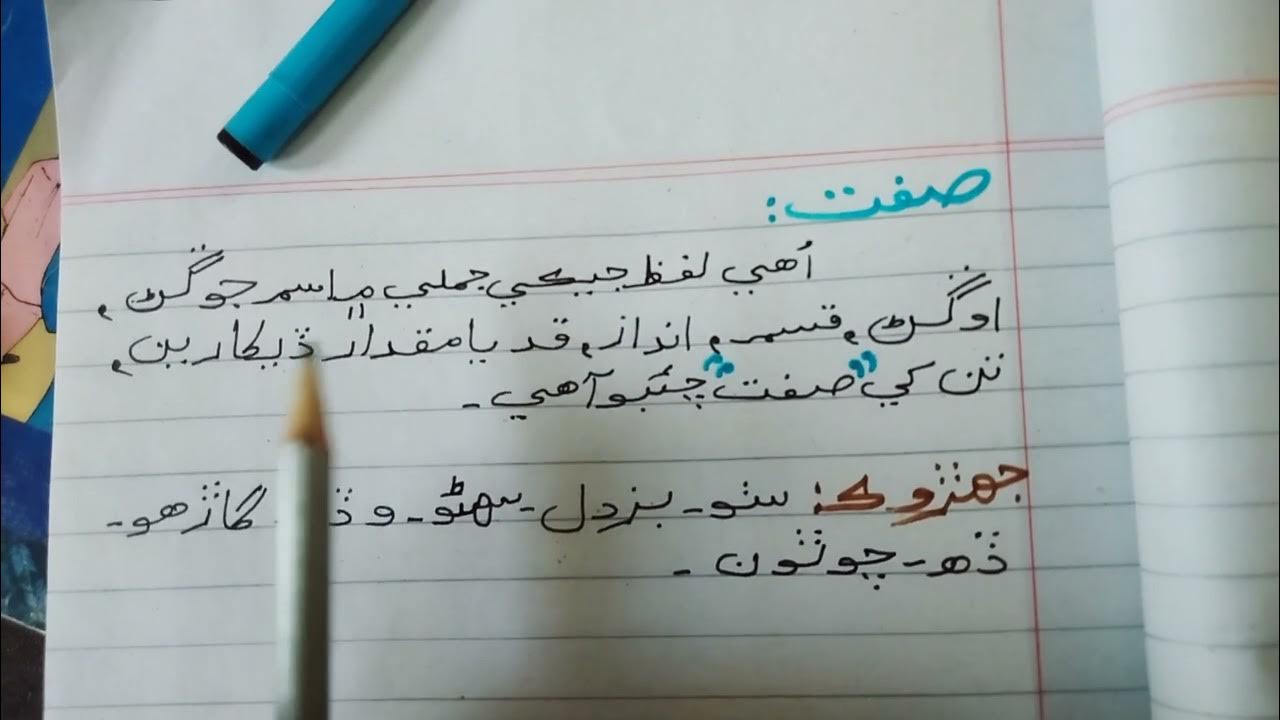 صفت:
اُهي لفظ جيڪي جملي ۾ اسم جو گڻ،
اوگڻ، قسم، انداز، قد يا مقدار ڏيکارين،
تن کي "صفت" چئبو آهي۔
جھڙوڪ: سٺو۔ بزدل۔ سھڻو۔ گاڙھو۔
ڏھ۔ چوٿون۔